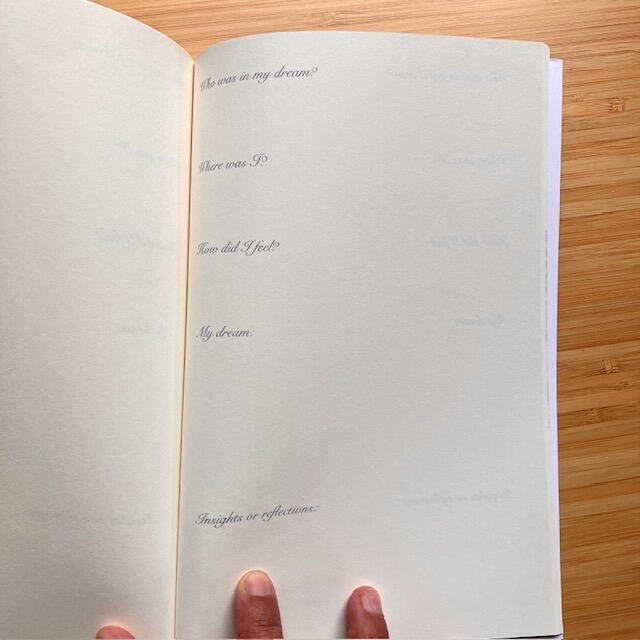 Who was in my dream?
Where was I?
How did I feel?
My dream:
Insights or reflections: